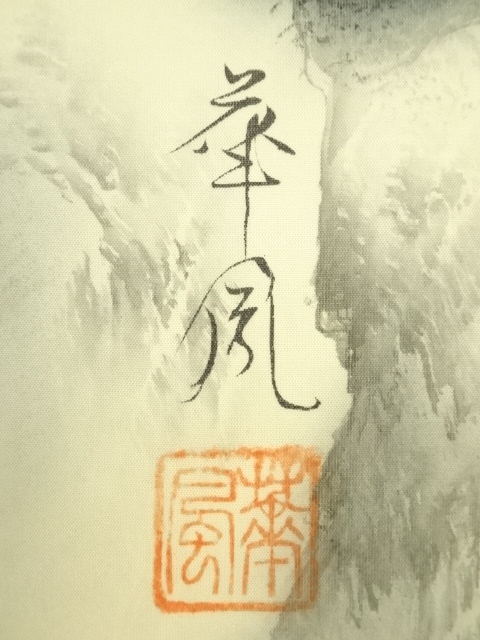 華風
華風